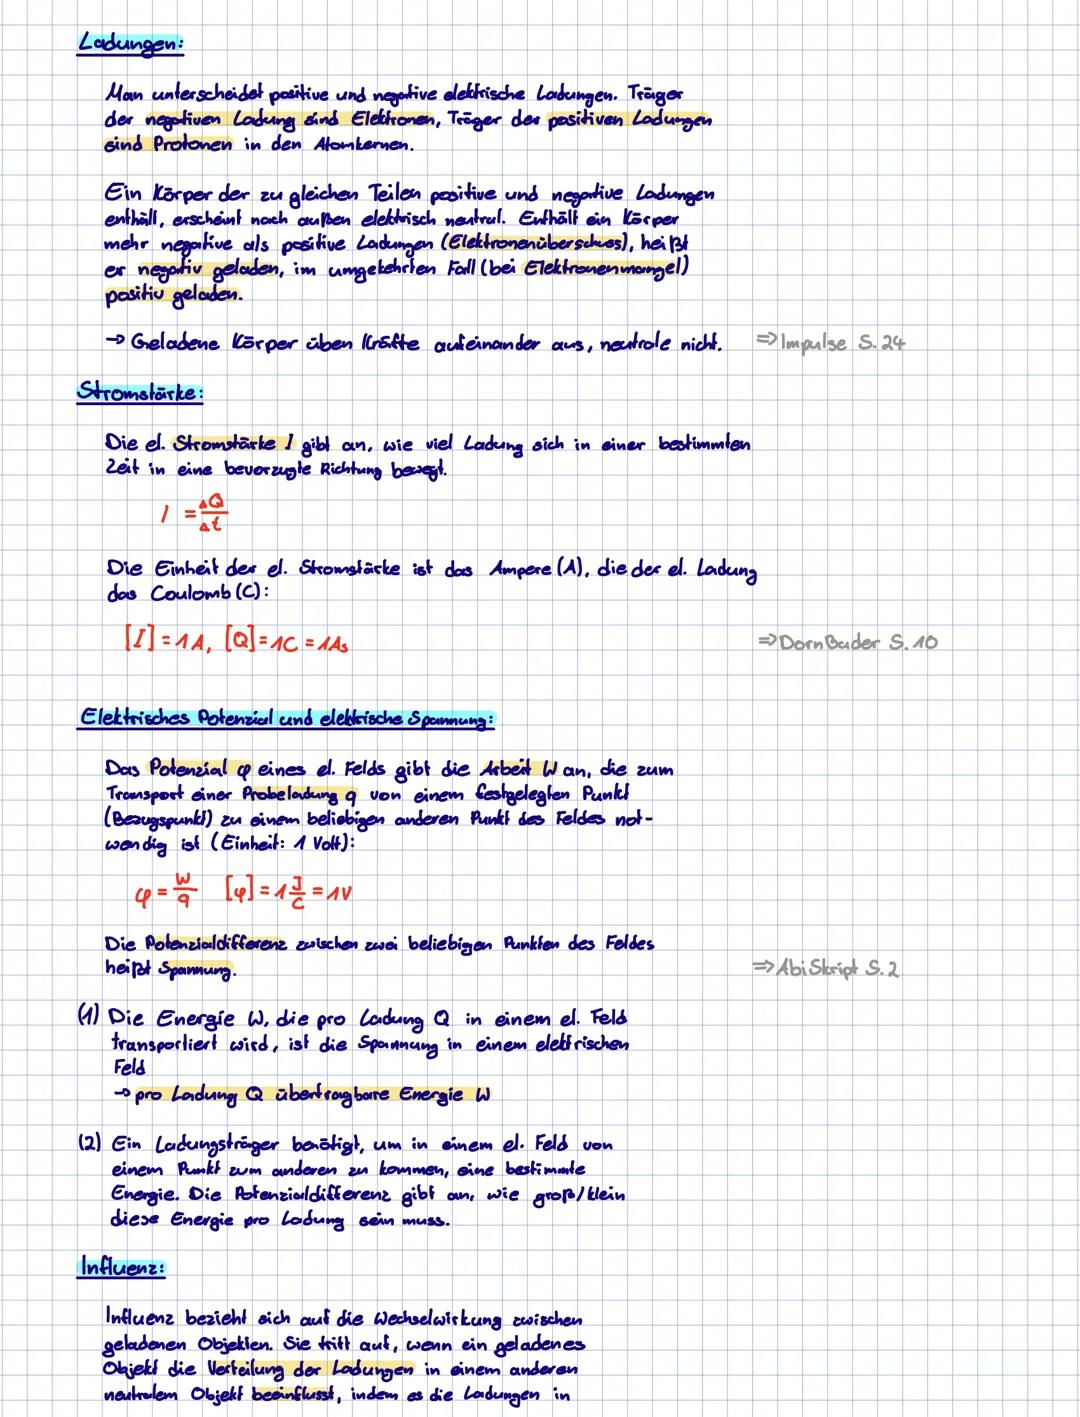 Ladungen:
Man unterscheidet positive und negative elektrische Ladungen. Träger
der negativen Ladung sind Elektronen, Träger der positiven Ladungen
sind Protonen in den Atomkernen.
Ein Körper der zu gleichen Teilen positive und negative Ladungen
enthält, erscheint nach außen elektrisch neutral. Enthält ein Körper
mehr negative als positive Ladungen (Elektronenüberschuss), heißt
er negativ geladen, im umgekehrten Fall (bei Elektronenmangel)
positiv geladen.
→ Geladene Körper üben Kräfte aufeinander aus, neutrale nicht. ⇒ Impulse S. 24
Stromstärke:
Die el. Stromstärke I gibt an, wie viel Ladung sich in einer bestimmten
Zeit in eine bevorzugte Richtung bewegt.
I = ΔQ/Δt
Die Einheit der el. Stromstärke ist das Ampere (A), die der el. Ladung
das Coulomb (C):
[I] = 1A, [Q] = 1C = 1As ⇒ DornBader S. 10
Elektrisches Potenzial und elektrische Spannung:
Das Potenzial φ eines el. Felds gibt die Arbeit W an, die zum
Transport einer Probeladung q von einem festgelegten Punkt
(Bezugspunkt) zu einem beliebigen anderen Punkt des Feldes not-
wendig ist (Einheit: 1 Volt):
φ = W/q [φ] = 1 J/C = 1V
Die Potenzialdifferenz zwischen zwei beliebigen Punkten des Feldes
heißt Spannung. ⇒ AbiSkript S. 2
(1) Die Energie W, die pro Ladung Q in einem el. Feld
transportiert wird, ist die Spannung in einem elektrischen
Feld
→ pro Ladung Q übertragbare Energie W
(2) Ein Ladungsträger benötigt, um in einem el. Feld von
einem Punkt zum anderen zu kommen, eine bestimmte
Energie. Die Potenzialdifferenz gibt an, wie groß/klein
diese Energie pro Ladung sein muss.
Influenz:
Influenz bezieht sich auf die Wechselwirkung zwischen
geladenen Objekten. Sie tritt auf, wenn ein geladenes
Objekt die Verteilung der Ladungen in einem anderen
neutralem Objekt beeinflusst, indem es die Ladungen in